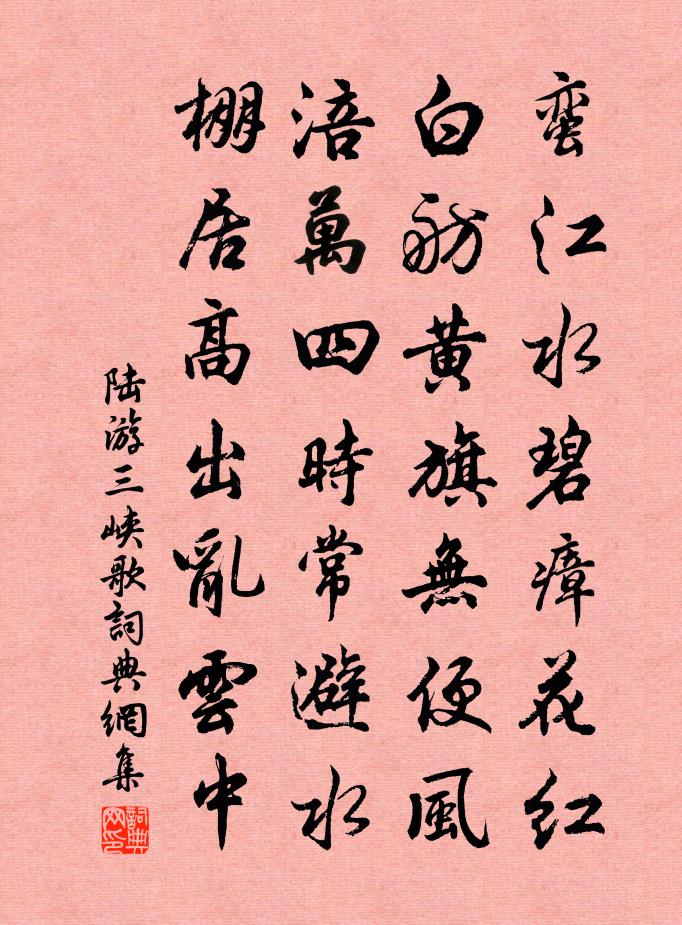 蛮江水碧瘴花红
白舫黄旗無便風
涪萬四時常避水
棚居高出亂雲中
陆游三峡歌詞典網集
詞典网印